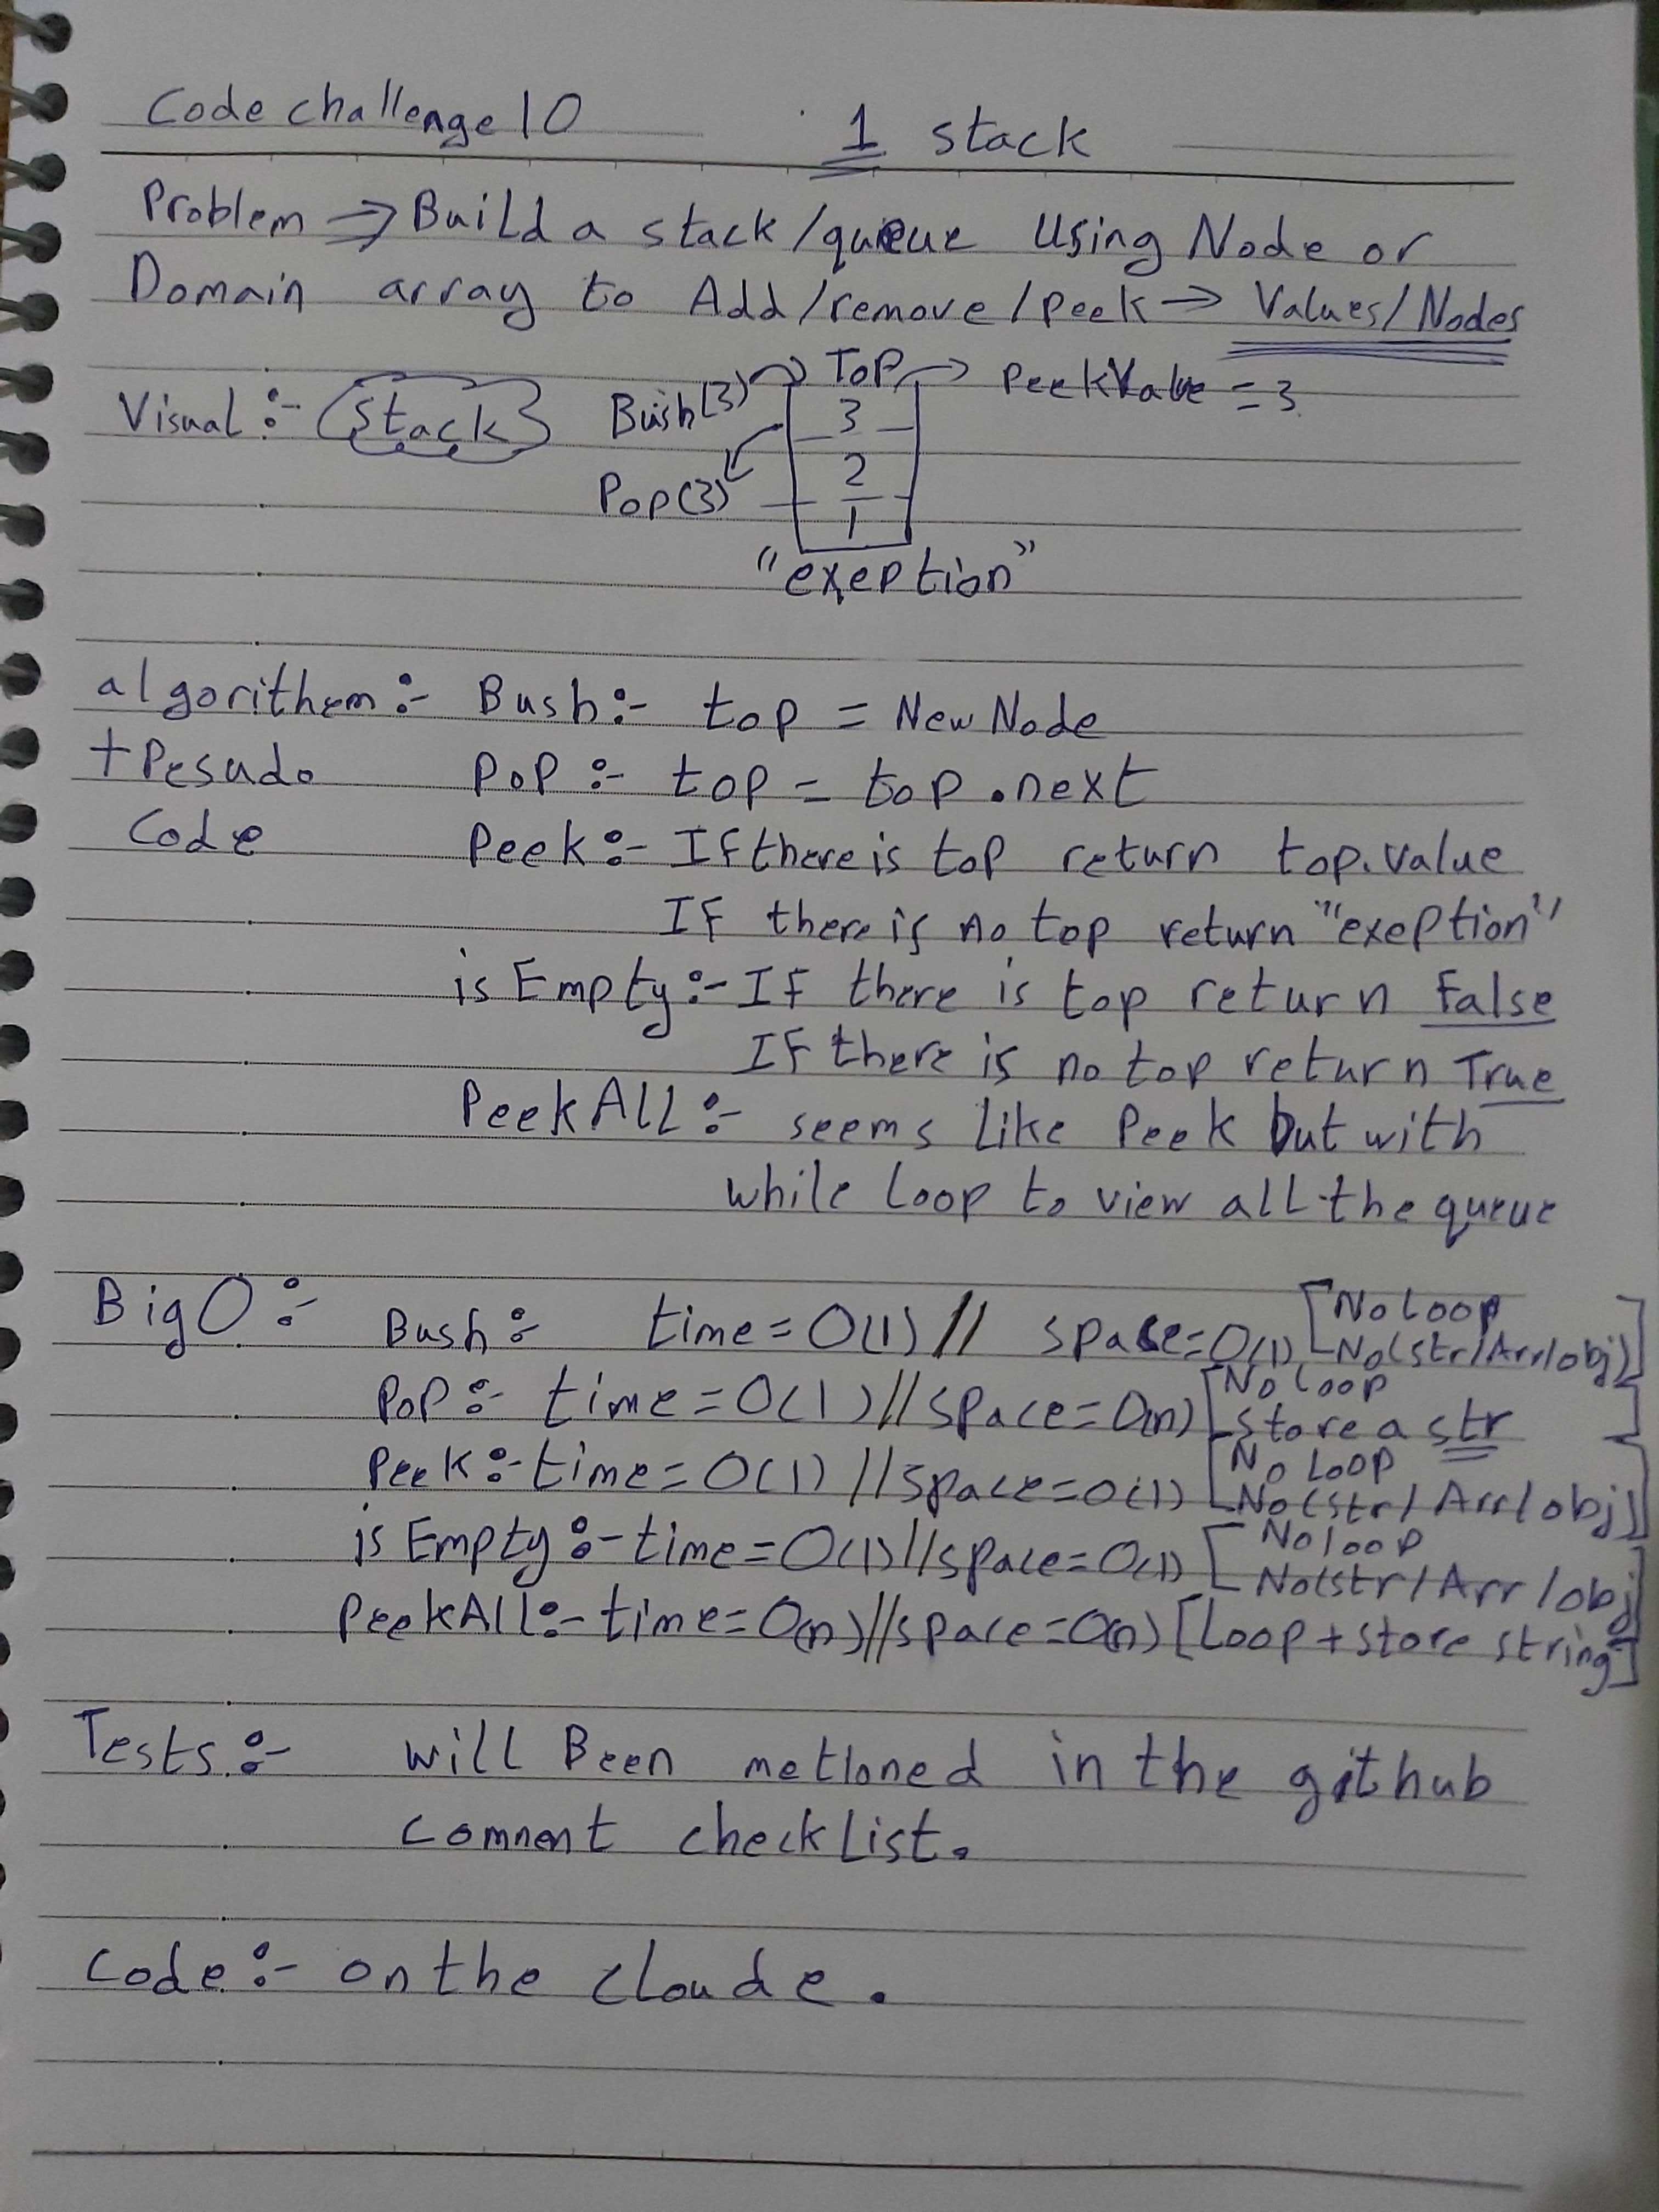 Code challenge 10
1 stack
Problem ⇒ Build a stack/queue Using Node or
Domain array to Add/remove/peek → Values/Nodes
Visual :- (Stack)
Bush(3)
Top
PeekValue = 3
3
2
1
Pop(3)
"exeption"
algorithem :- Bush :- top = New Node
+ Pesudo Pop :- top = top.next
Code Peek :- If there is top return top.value
If there is no top return "exeption"
is Empty :- If there is top return False
If there is no top return True
PeekALL :- seems like Peek but with
while loop to view all the queue
Big O :-
Bush :- time = O(1) // space = O(1) [No loop
No(str/Arr/obj)]
Pop :- time = O(1) // space = O(n) [No loop
store a str]
Peek :- time = O(1) // space = O(1) [No loop
No(str/Arr/obj)]
is Empty :- time = O(1) // space = O(1) [No loop
No(str/Arr/obj]
PeekAll :- time = O(n) // space = O(n) [Loop + store string]
Tests :- will Been metioned in the github
comment checkList.
code :- on the cloude.